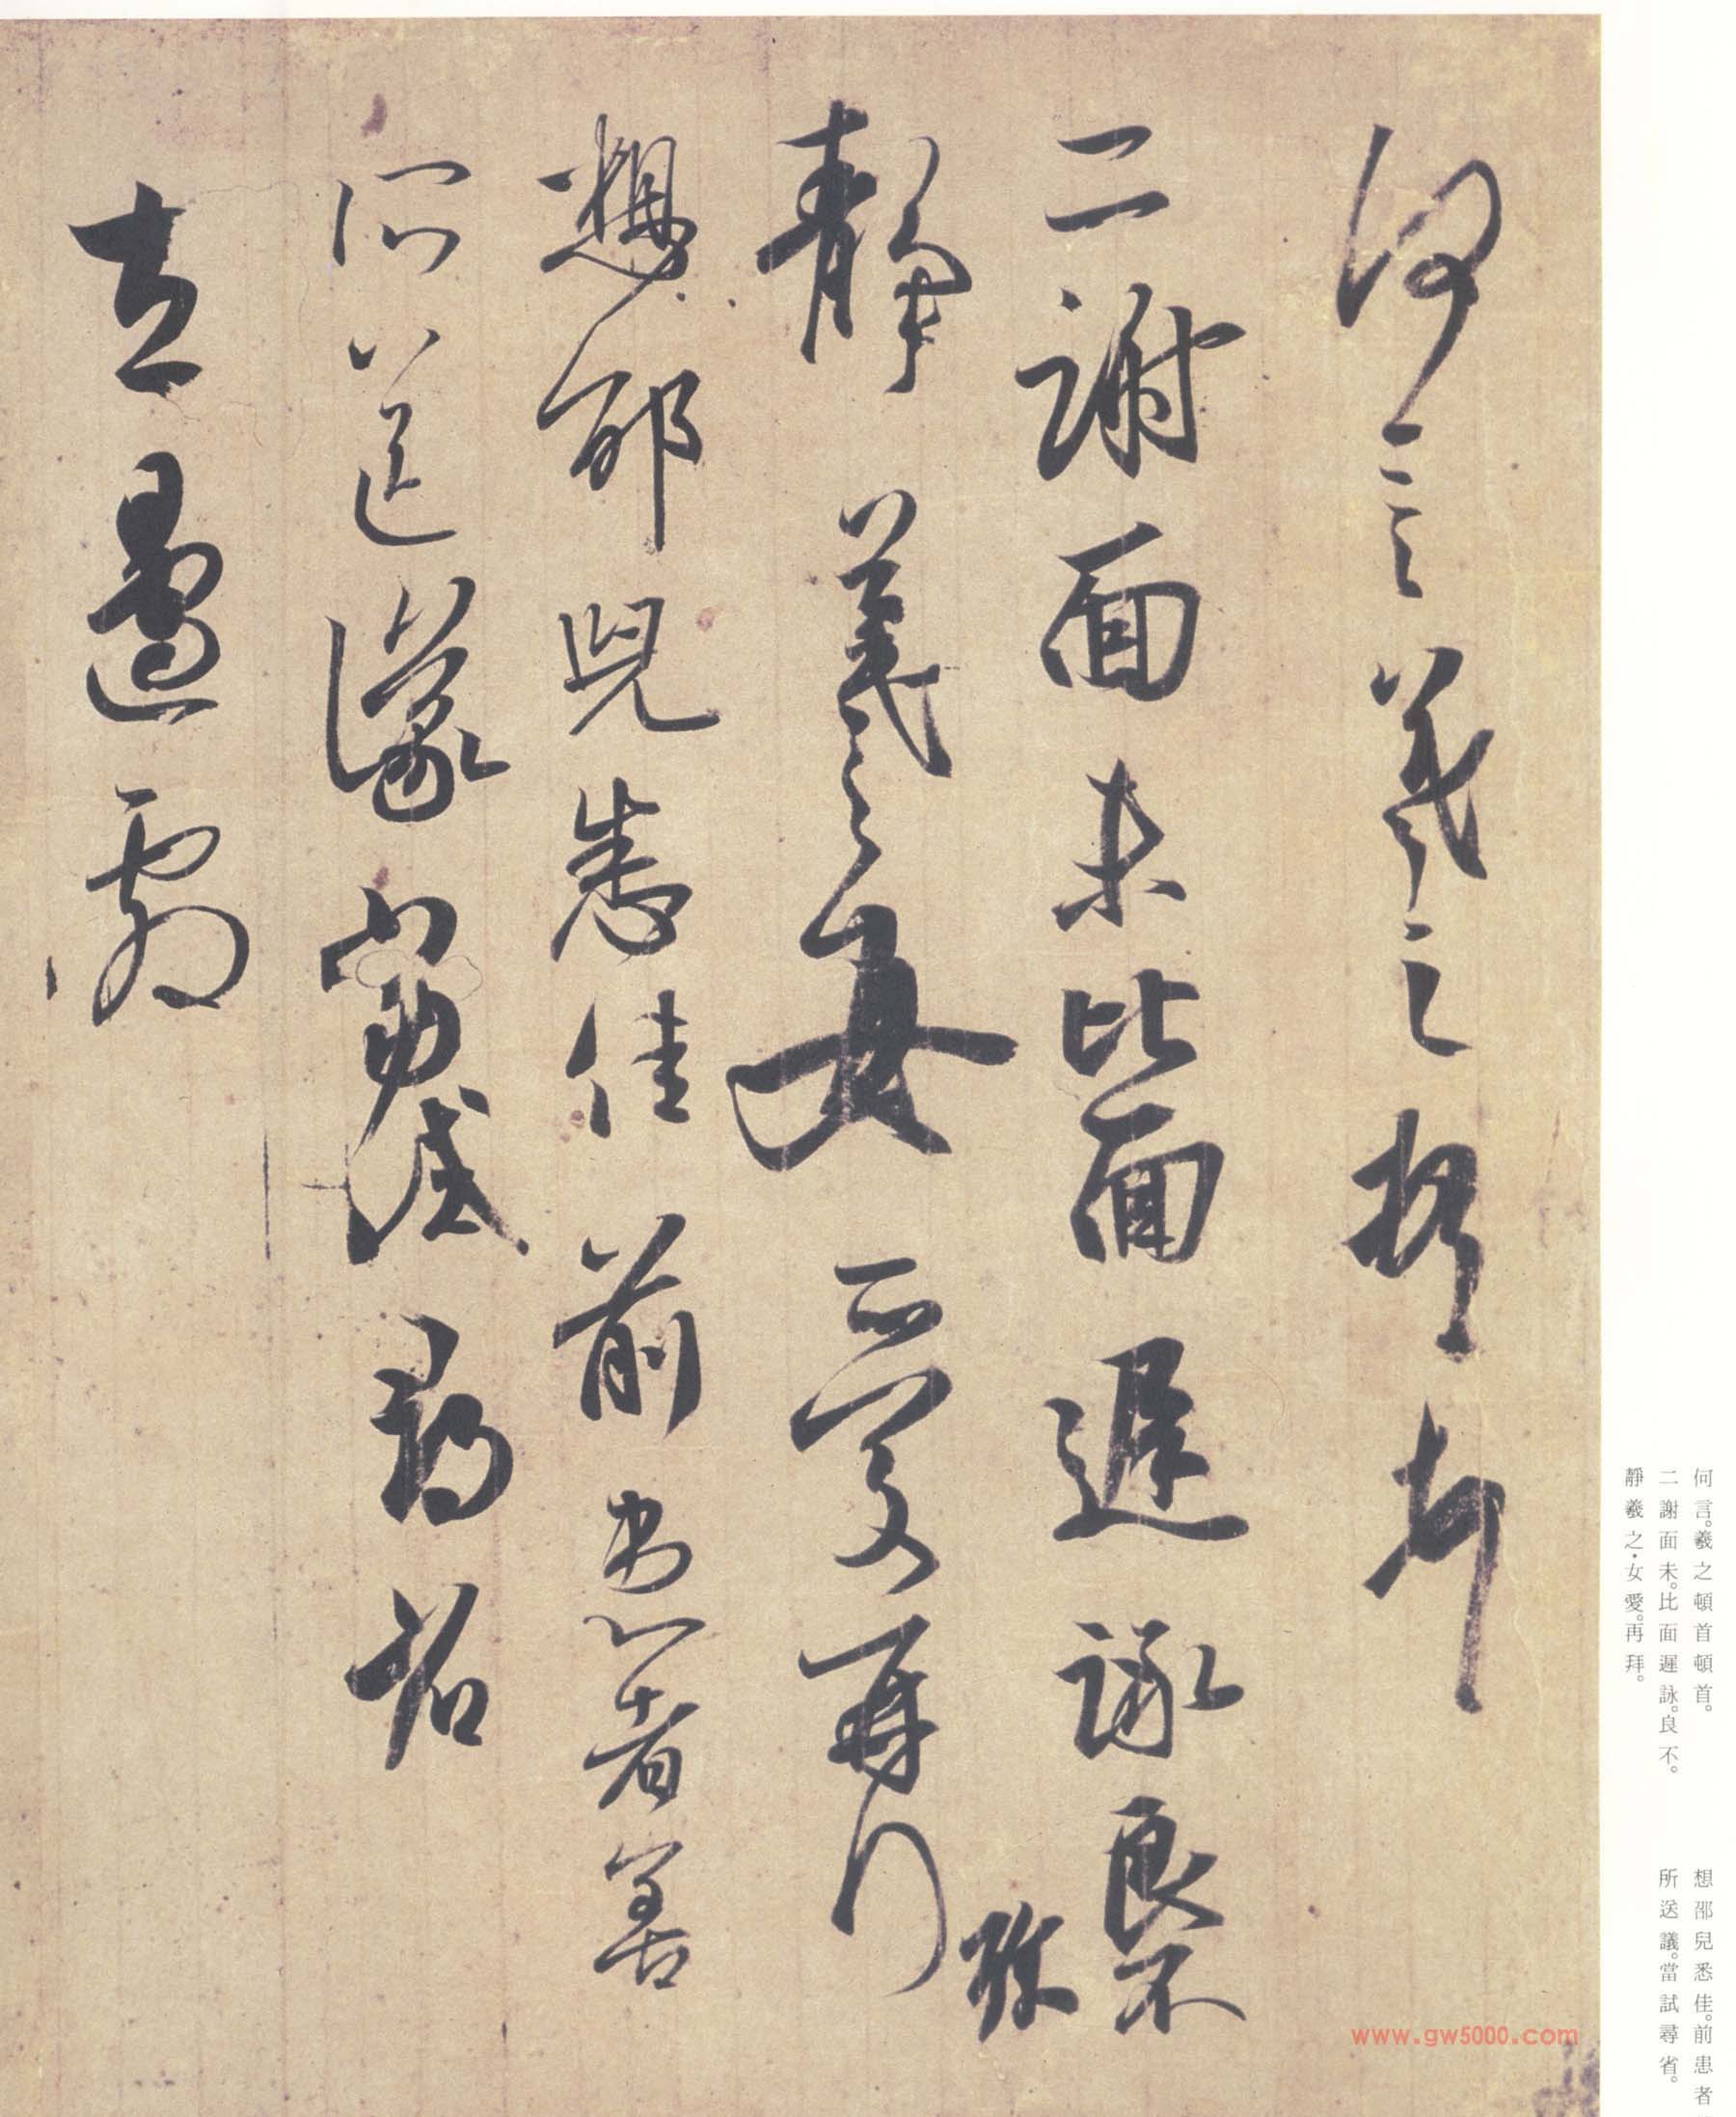 何言羲之頓首
二謝面未比面遲詠良不
靜羲之女愛再拜
想邵兒悉佳前患者善
所送議當試尋省
左邊劇
何言。羲之頓首頓首。
二謝面未。比面遲詠。良不。
靜羲之・女愛。再拜。
想邵兒悉佳。前患者
所送議。當試尋省。
www.gw5000.com